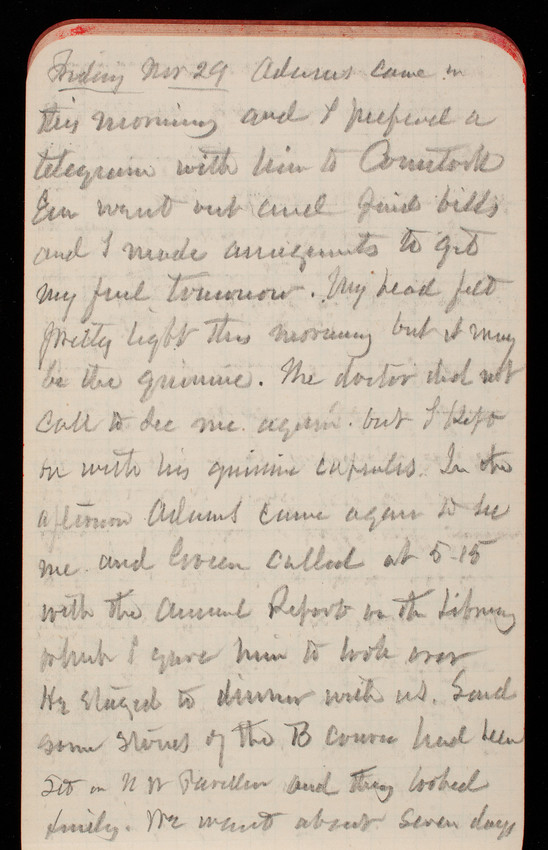 Friday Nov 29 Adams came in
this morning and I prepared a
telegram with him to Comstock
Em went out and paid bills
and I made arrangements to get
my fuel tomorrow. My head felt
pretty light this morning but it may
be the quinine. The doctor did not
call to see me again. but I kept
on with his quinine capsules. In the
afternoon Adams came again to see
me and Green called at 5-15
with the Annual Report on the Library
which I gave him to look over
He stayed to dinner with us. Said
some stones of the B course had been
set on N W Pavilion and they looked
finely. We want about seven days